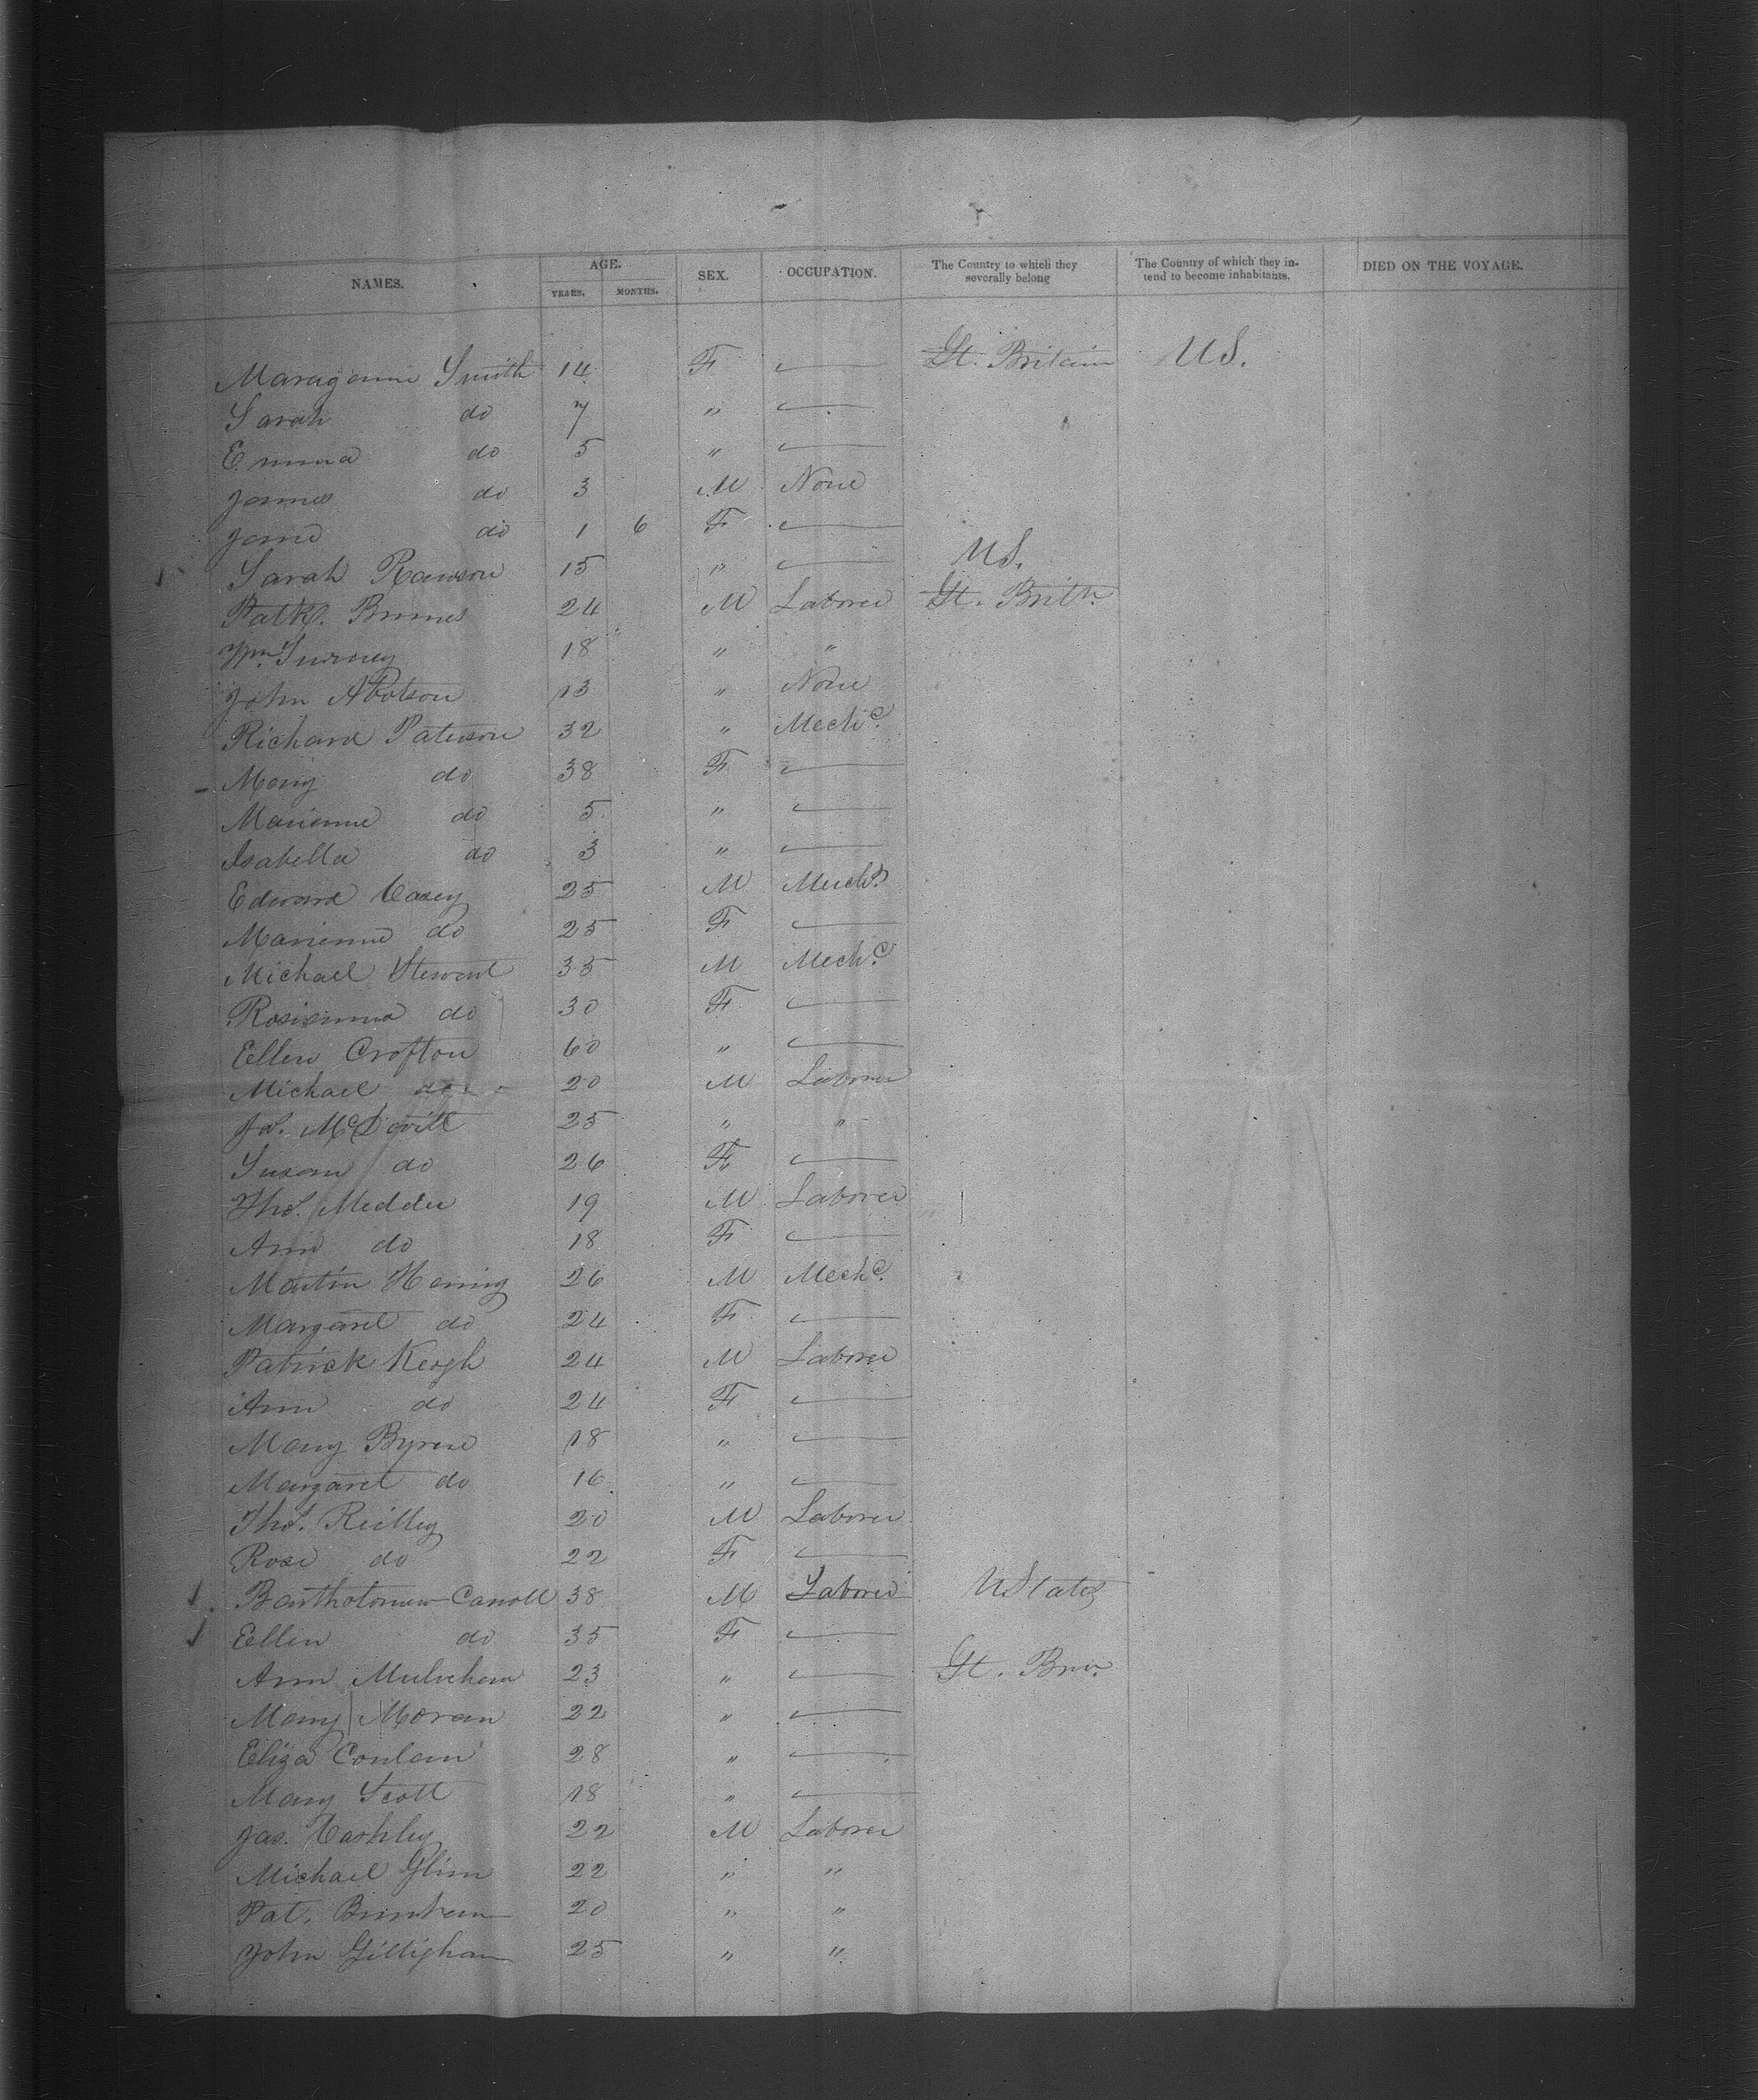 NAMES. AGE. YEARS. MONTHS. SEX. OCCUPATION. The Country to which they severally belong The Country of which they intend to become inhabitants. DIED ON THE VOYAGE.
Smith 14 F Gt. Britain US.
Sarah do 7 "
Emma do 5 "
James do 3 M None
Jane do 1 6 F
Sarah Rawson 15 " US.
Patk. 24 M Laborer Gt. Britn.
Wm. 18 " "
John 13 " None
Richard Paterson 32 " Mechc.
Mary do 38 F
Marianne do 5 "
Isabella do 3 "
Edward Casey 25 M
Marianne do 25 F
Michael Stewart 35 M Mechc.
Rosianna do 30 F
Ellen Crofton 60 "
Michael do 20 M Laborer
McDevitt 25 " "
Susan do 26 F
Thos. Medder 19 M Laborer
Ann do 18 F
Martin 26 M Mechc.
Margaret do 24 F
Patrick Keogh 24 M Laborer
Ann do 24 F
Mary Byrne 18 "
Margaret do 16 "
Thos. Reilley 20 M Laborer
Rose do 22 F
Bartholomew Carroll 38 M Laborer UStates
Ellen do 35 F
Ann 23 " Gt. Brin.
Mary Moran 22 "
Eliza Conlan 28 "
Mary Scott 18 "
Jas. 22 M Laborer
Michael Glinn 22 " "
Pat. 20 " "
John Gillighan 25 " "